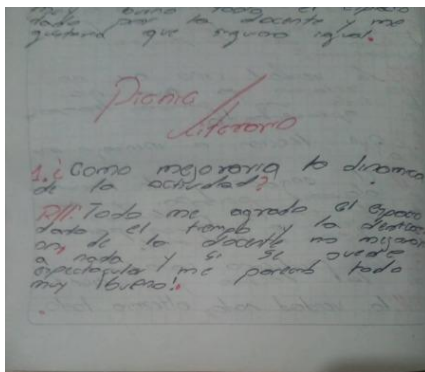 muy bueno todo el espacio
dado por la docente y me
gustaria que siguiera igual.
Picnic
Literario
1. ¿Como mejoraria la dinamica
de la actividad?
R//: Todo me agrado el espacio
dado el tiempo y la
on, de la docente no mejoraria
a nada y si se puede
espectacular me parecio todo
muy bueno!.